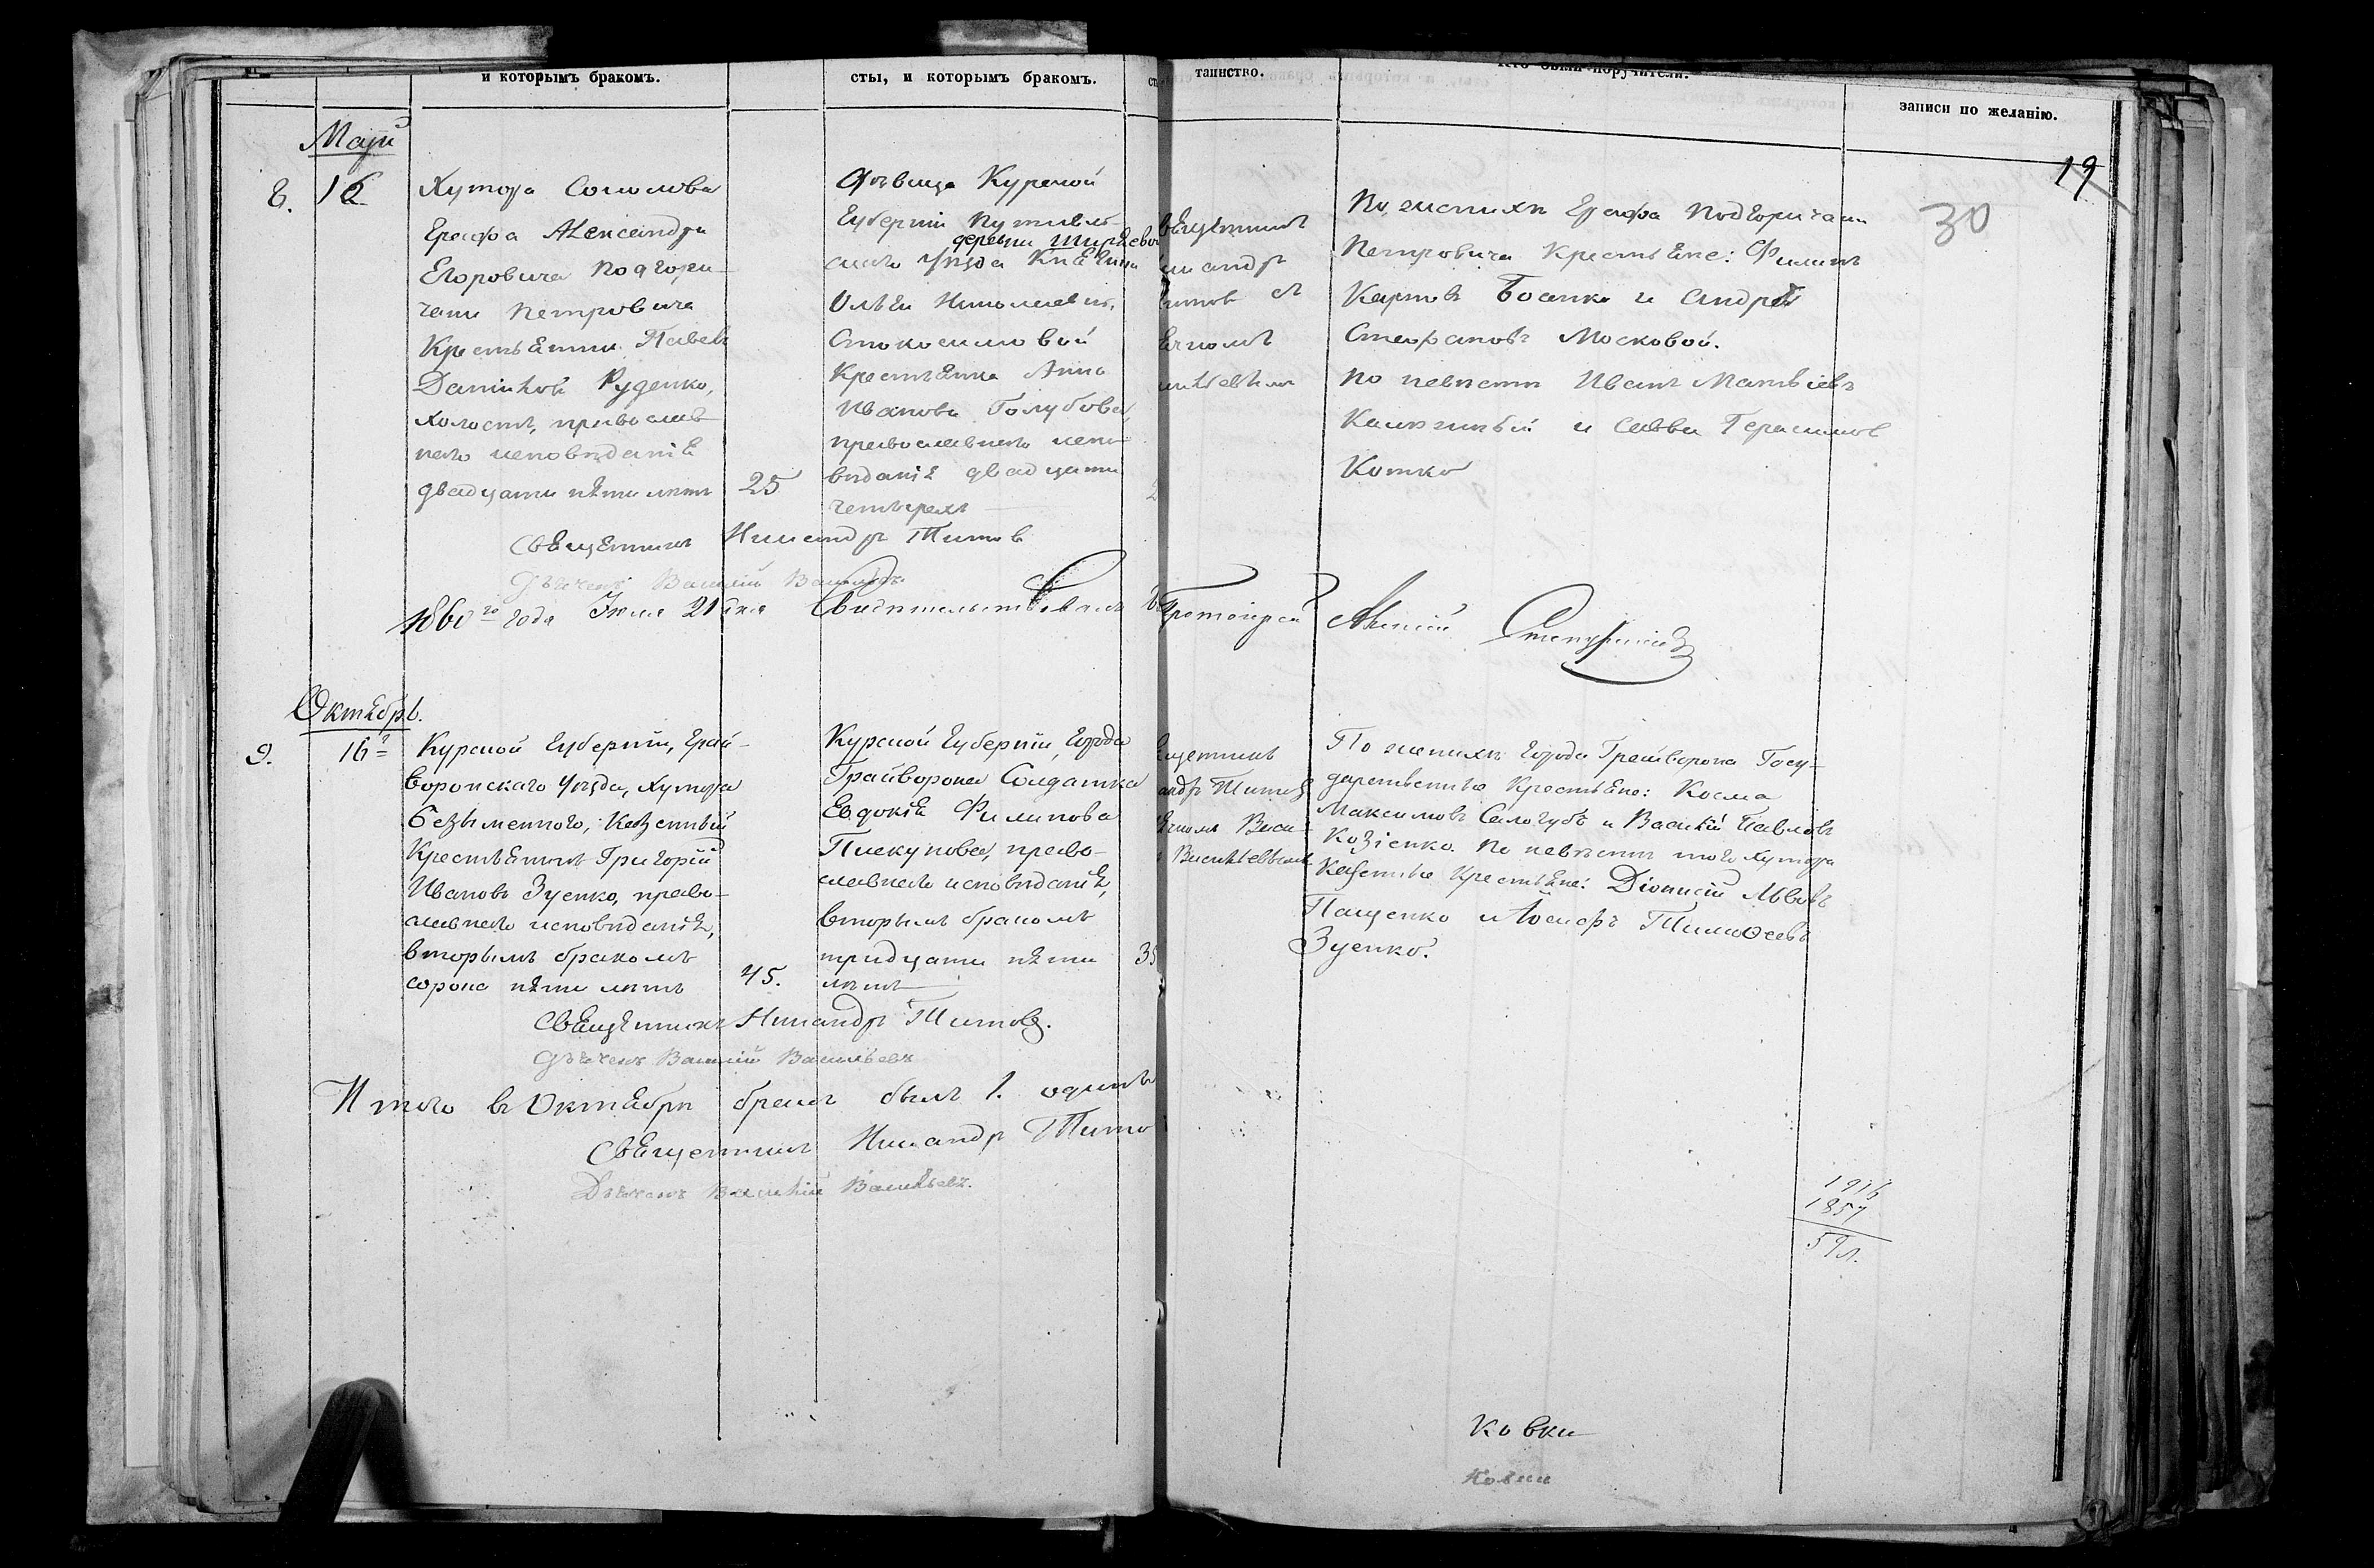 и которымъ бракомъ.
сты, и которымъ бракомъ.
таинство.
Кто были поручители.
записи по желанію.
19
30
Маій
8.
16
Хутора Соколова
Графа Александра
Егоровича Подгори-
чани Петровича
Крестьянинъ Павелъ
Даніиловъ Руденко,
холостъ, православ-
наго исповѣданія
двадцати пяти лѣтъ
25
Дѣвица Курской
Губерніи Путивль-
деревни Ширяевой
скаго Уѣзда Княгини
Ольги Николаевны
Крестьянка Анна
Иванова Голубова,
православнаго испо-
вѣданія двадцати
четырехъ
2
вященникъ
икандръ
итовъ съ
ячкомъ
По женихѣ Графа Подгоричани
Петровича Крестьяне: Филипъ
Карповъ Босенко и Андрей
Стефановъ Московой.
По невѣстѣ Иванъ Матвѣевъ
и Савва Герасимовъ
Котко
Священникъ Никандръ Титовъ
Дьячекъ Василій Васильевъ
1860го года Іюля 21 дня Свидѣтельствовалъ
Протоіерей
Октябрь.
9.
16
Курской Губерніи, Грай-
воронскаго Уѣзда, хутора
Безыменного, Казенный
Крестьянинъ Григорій
Ивановъ Зуенко, право-
славнаго исповѣданія,
вторымъ бракомъ
сорока пяти лѣтъ
45.
Курской Губерніи, города
Грайворона Солдатка
Евдокія Филипова
Пискунова, право-
славнаго исповѣданія,
вторымъ бракомъ
тридцати пяти
лѣтъ
35
ященникъ
андръ Титовъ
ячкомъ Васи-
Васильевымъ
По женихѣ города Грайворона Госу-
дарственные Крестьяне: Косма
Максимовъ Сологубъ и Василій Павловъ
Козіенко. По невѣстѣ того хутора
Казенные Крестьяне: Діонисій Львовъ
Пащенко и Іосифъ Тимоѳеевъ
Зуенко.
Священникъ Никандръ Титовъ.
Дьячекъ Василій Васильевъ
Итого въ Октябрѣ бракъ былъ 1. одинъ
Священникъ Никандръ Тито
Дьячекъ Василій Васильевъ.
1916
1857
59 л.
Ковки